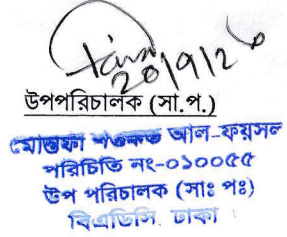 20/9/2
উপপরিচালক (সা.প.)
মোস্তফা শওকত আল-ফয়সল
পরিচিতি নং-০১০০৫৫
উপ পরিচালক (সাঃ পঃ)
বিএডিসি ঢাকা